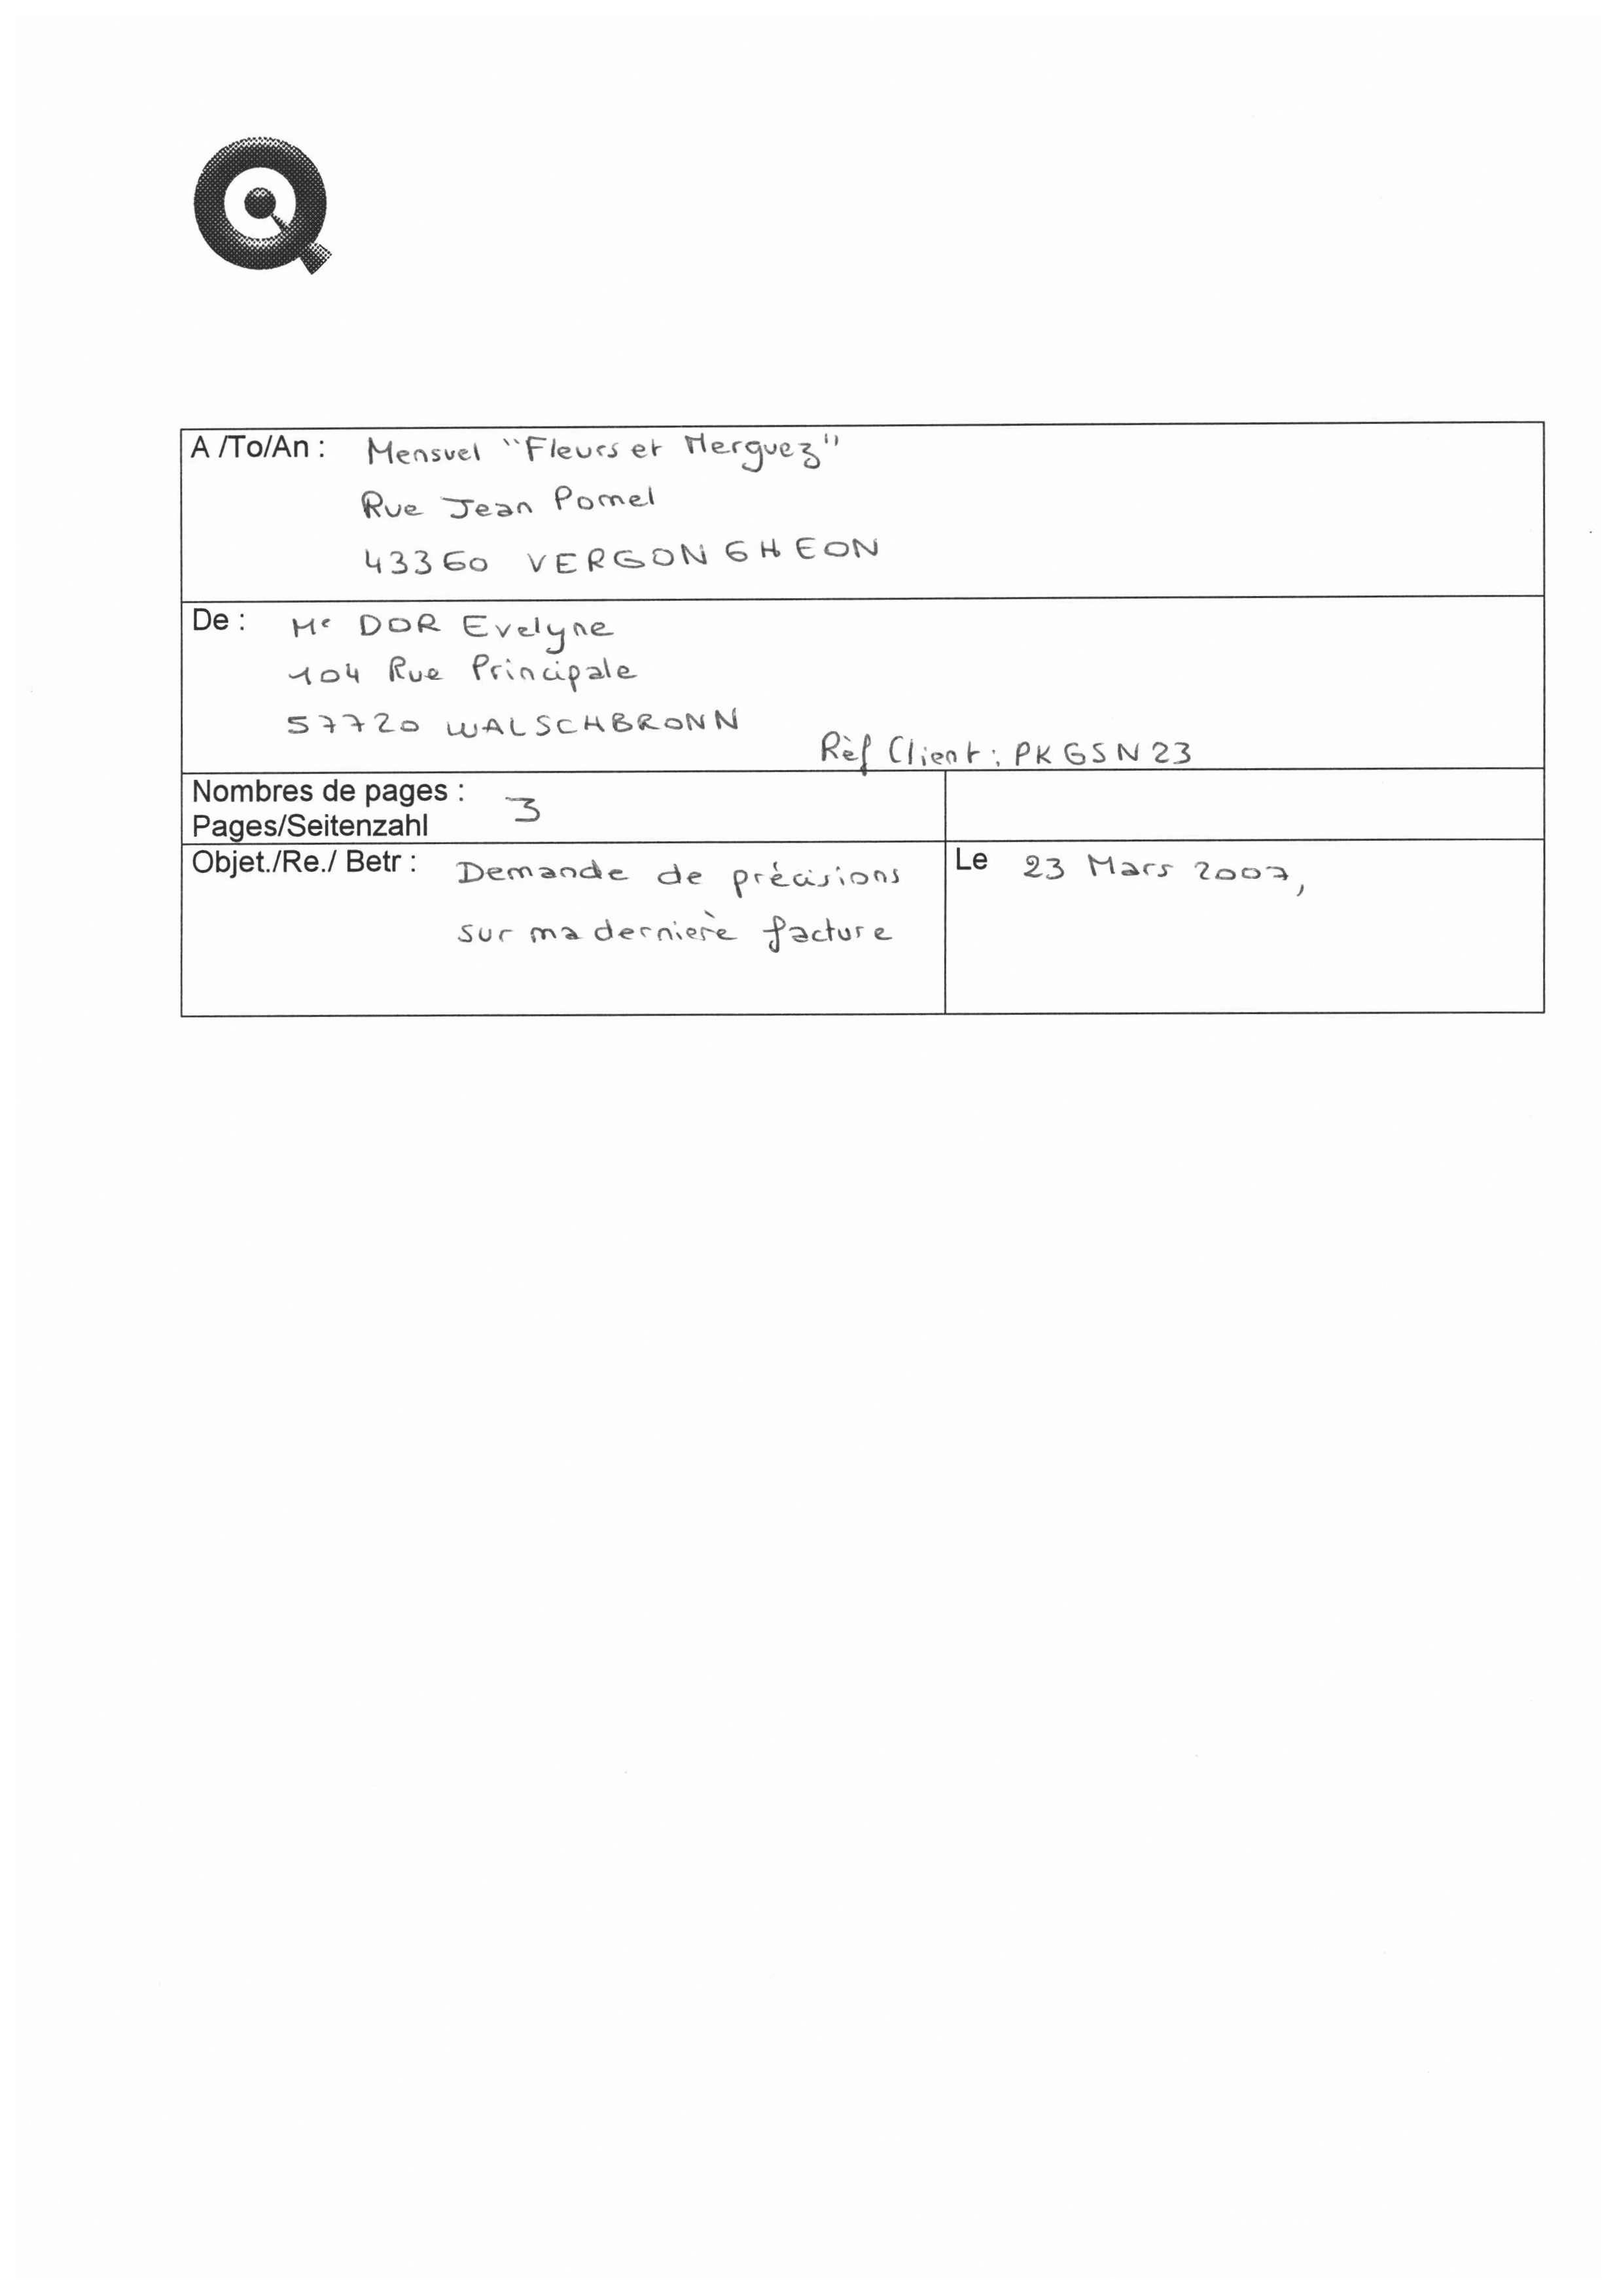 A /To/An : Mensuel "Fleurs et Merguez"
Rue Jean Pomel
43360 VERGONGHEON
De : Me DOR Evelyne
104 Rue Principale
57720 WALSCHBRONN
Rèf Client : PKGSN23
Nombres de pages : 3
Pages/Seitenzahl
Objet./Re./ Betr : Demande de précisions
sur ma dernière facture
Le 23 Mars 2007,